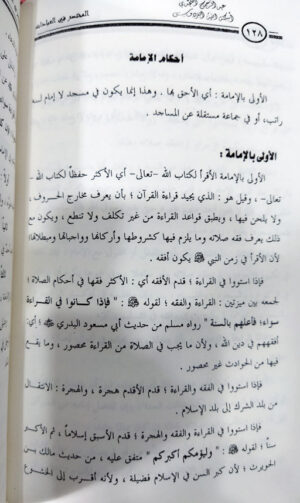 المختصر في العبادات
١٢٨
أحكام الإمامة
الأولى بالإمامة : أي الأحق بها . وهذا إنما يكون في مسجد لا إمام له
راتب، أو في جماعة مستقلة عن المساجد .
الأولى بالإمامة :
الأولى بالإمامة الأقرأ لكتاب الله -تعالى- أي الأكثر حفظاً لكتاب الله -
تعالى- ، وقيل هو : الذي يجيد قراءة القرآن ؛ بأن يعرف مخارج الحروف ،
ولا يلحن فيها ، ويطبق قواعد القراءة من غير تكلف ولا تنطع ، ويكون مع
ذلك يعرف فقه صلاته وما يلزم فيها كشروطها وأركانها وواجباتها ومبطلاتها؛
لأن الأقرأ في زمن النبي ﷺ يكون أفقه .
فإذا استووا في القراءة ؛ قدم الأفقه أي : الأكثر فقها في أحكام الصلاة ؛
لجمعه بين ميزتين : القراءة والفقه ؛ لقوله ﷺ : " فإذا كانوا في القراءة
سواء؛ فأعلمهم بالسنة " رواه مسلم من حديث أبي مسعود البدري ؛ أي:
أفقههم في دين الله ، ولأن ما يجب في الصلاة من القراءة محصور ، وما يقع
فيها من الحوادث غير محصور .
فإذا استووا في الفقه والقراءة ؛ قدم الأقدم هجرة ، والهجرة : الانتقال
من بلد الشرك إلى بلد الإسلام .
فإذا استووا في القراءة والفقه والهجرة ؛ قدم الأسبق إسلاماً ، ثم الأكبر
سناً ؛ لقوله ﷺ : " وليؤمكم أكبركم " متفق عليه ، من حديث مالك بن
الحويرث ؛ لأن كبر السن في الإسلام فضيلة ، ولأنه أقرب إلى الخشوع